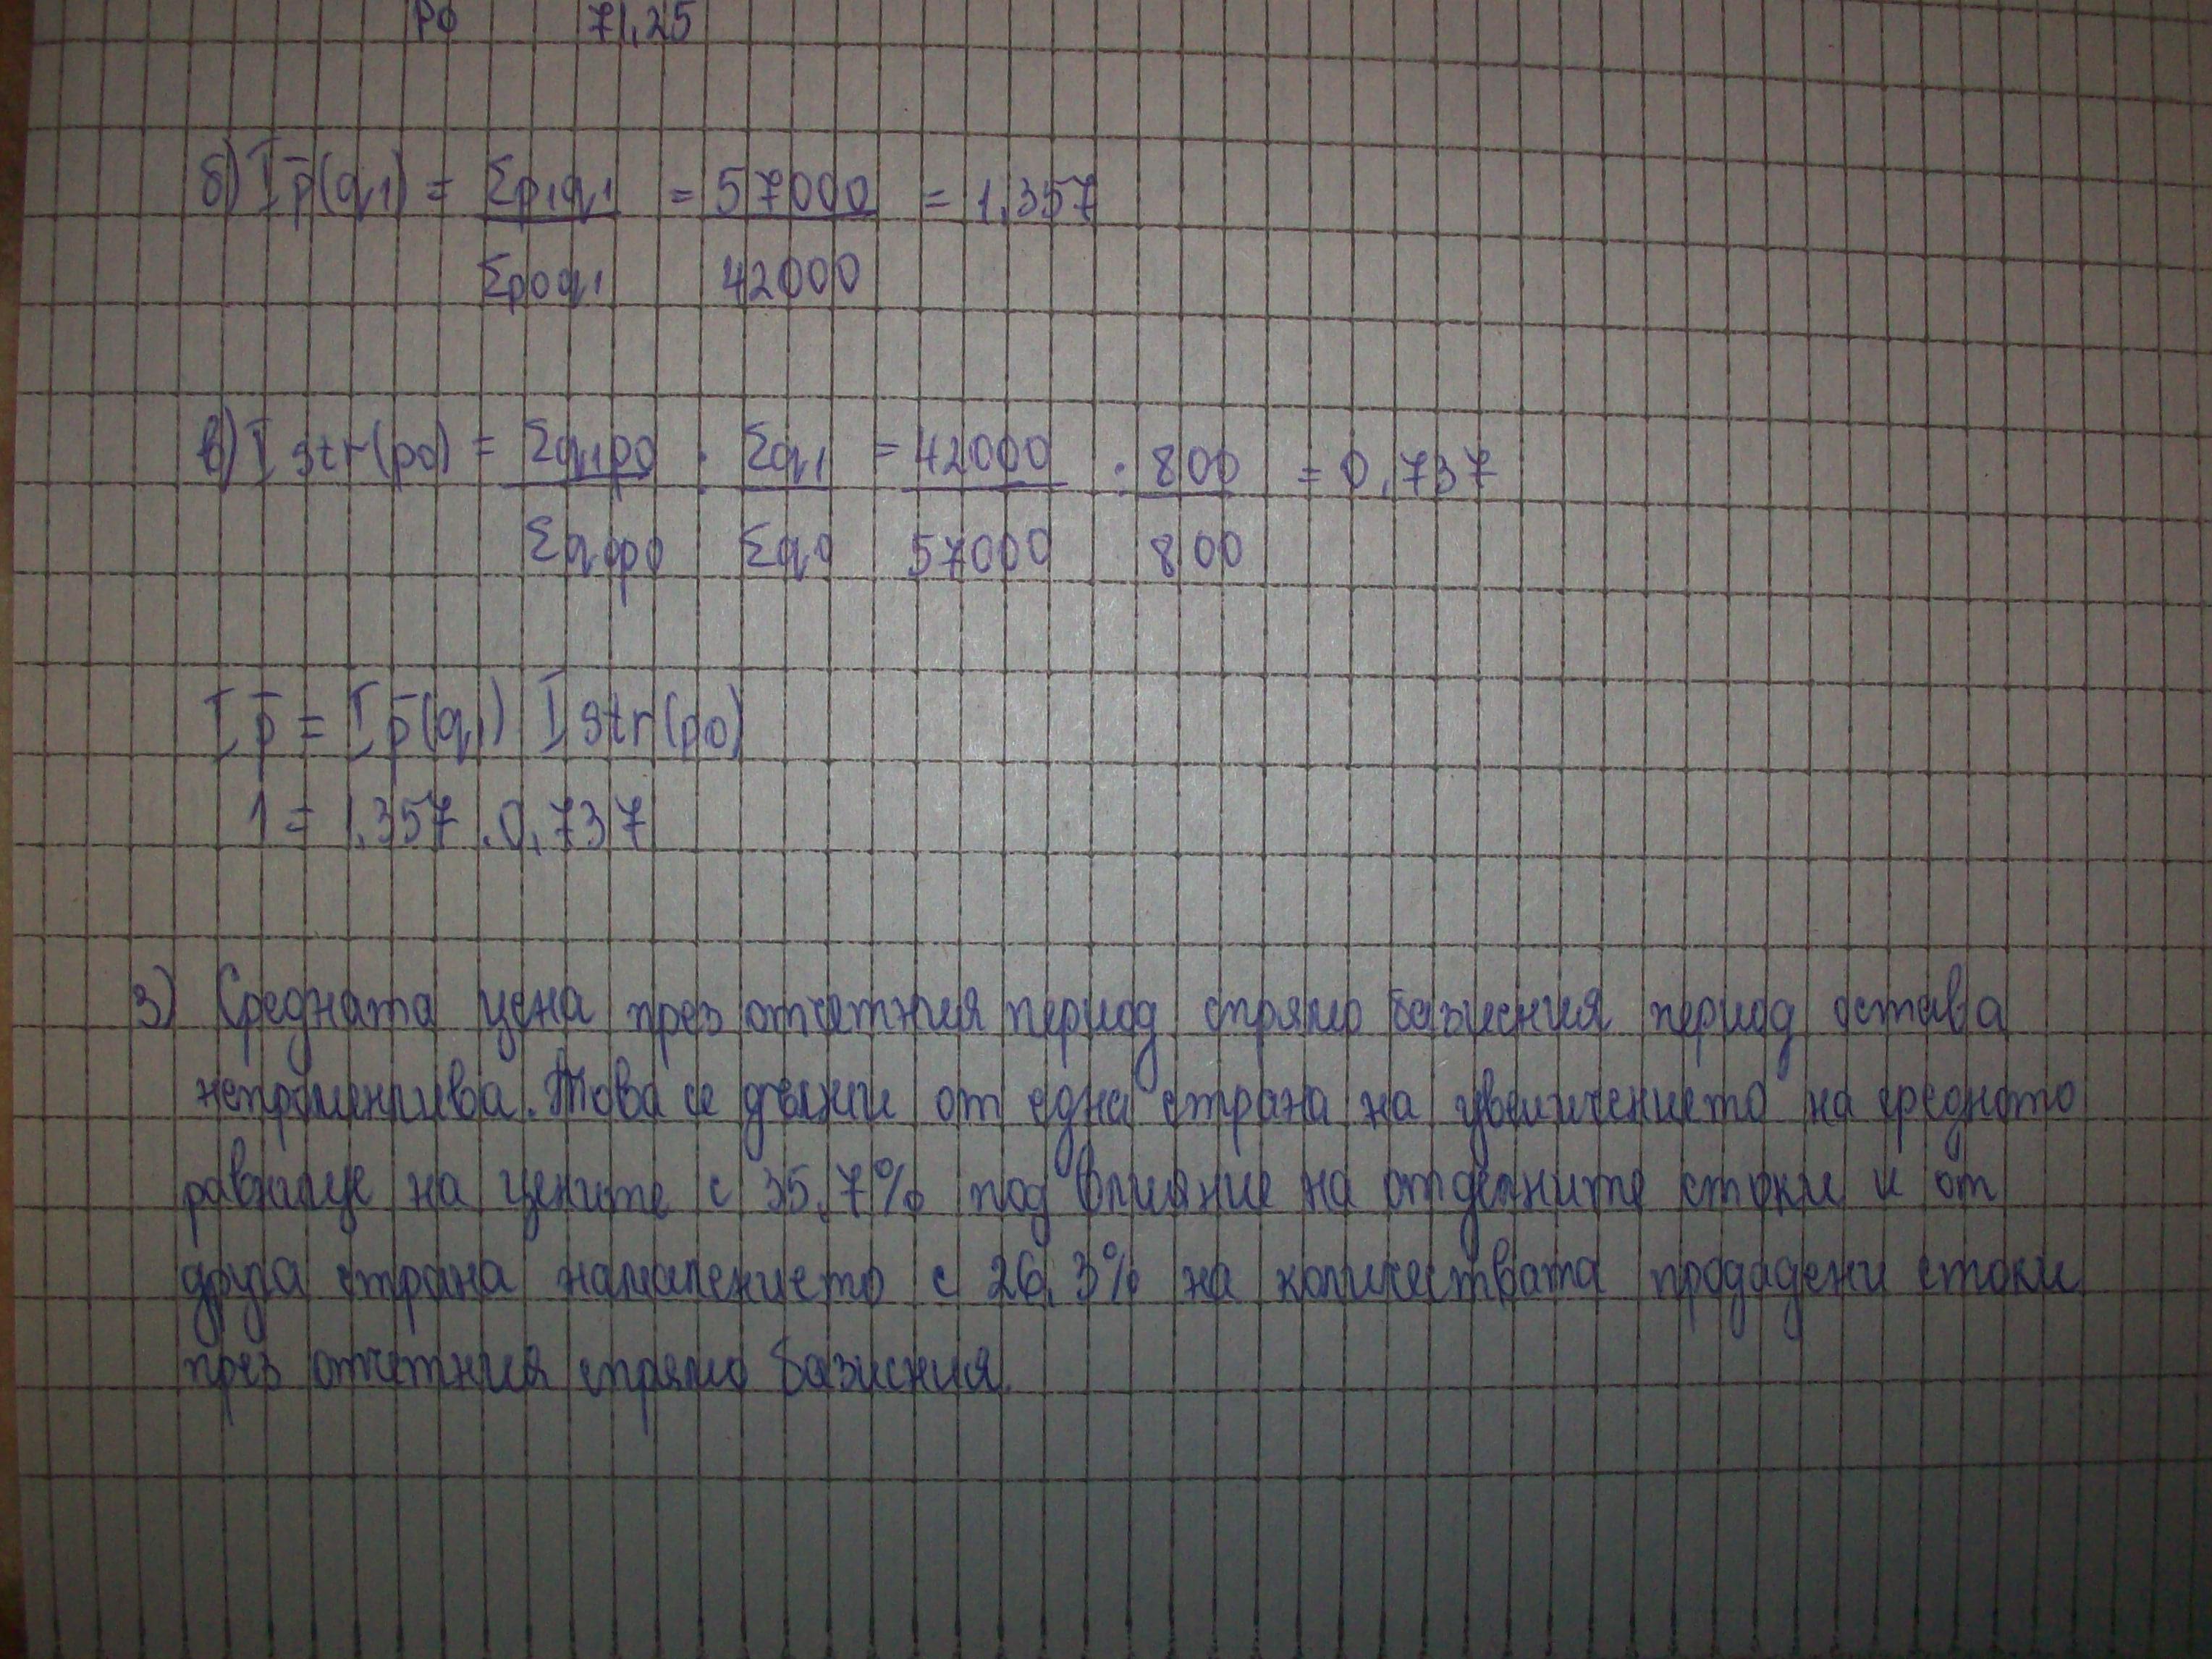 p0 71,25
б) Ip̄(q1) = Σp1q1 = 57000 = 1,357
Σp0q1 42000
в) I str(p0) = Σq1p0 : Σq1 = 42000 : 800 = 0,737
Σq0p0 Σq0 57000 800
Ip̄ = Ip̄(q1) I str(p0)
1 = 1,357 . 0,737
3) Средната цена през отчетния период спрямо базисния период остава
непроменлива. Това се дължи от една страна на увеличението на средното
равнище на цените с 35,7% под влияние на отделните стоки и от
друга страна намалението с 26,3% на количествата продадени стоки
през отчетния спрямо базисния.